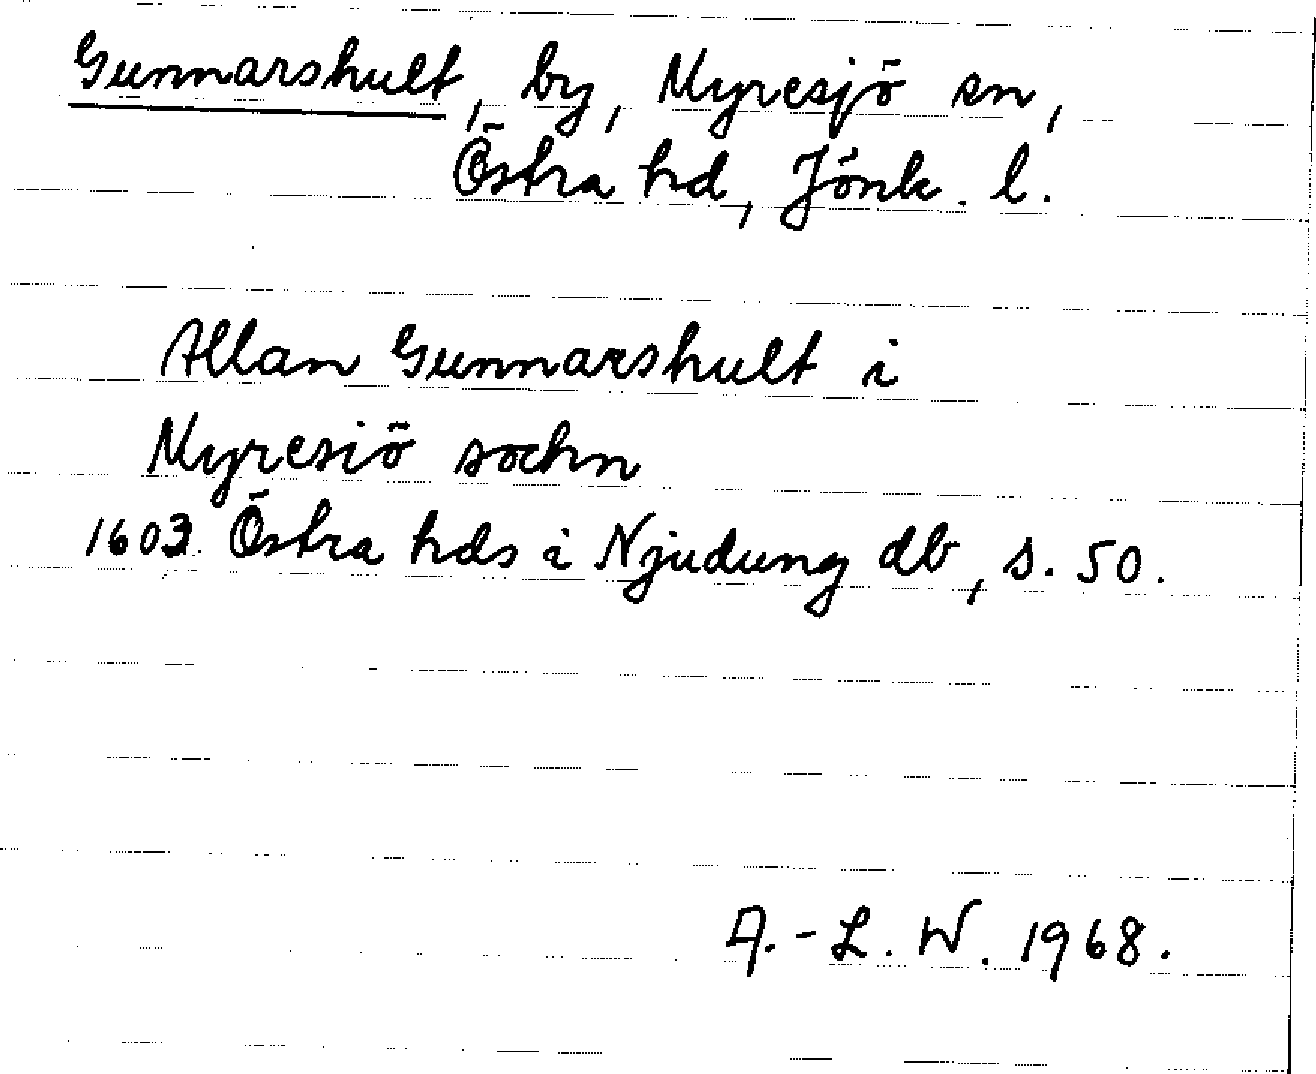 Gunnarshult, by, Myresjö sn,
Östra hd, Jönk. l.
Allan Gunnarshult i
Myresiö sochn
1603. Östra hds i Njudung db, s. 50.
A.-L. W. 1968.